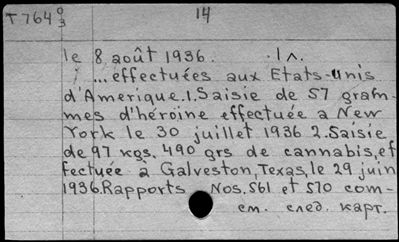 T 764 0/3 14
le 8 août 1936. 1 л.
...effectuées aux Etats-unis
d'Amerique.1.Saisie de 57 gram-
mes d'héroïne effectuée a New
York le 30 juillet 1936 2.Saisie
de 97 kgs. 490 grs de cannabis, ef
fectuée à Galveston, Texas, le 29 juin
1936.Rapports Nos. 561 et 570 com-
см. след. карт.